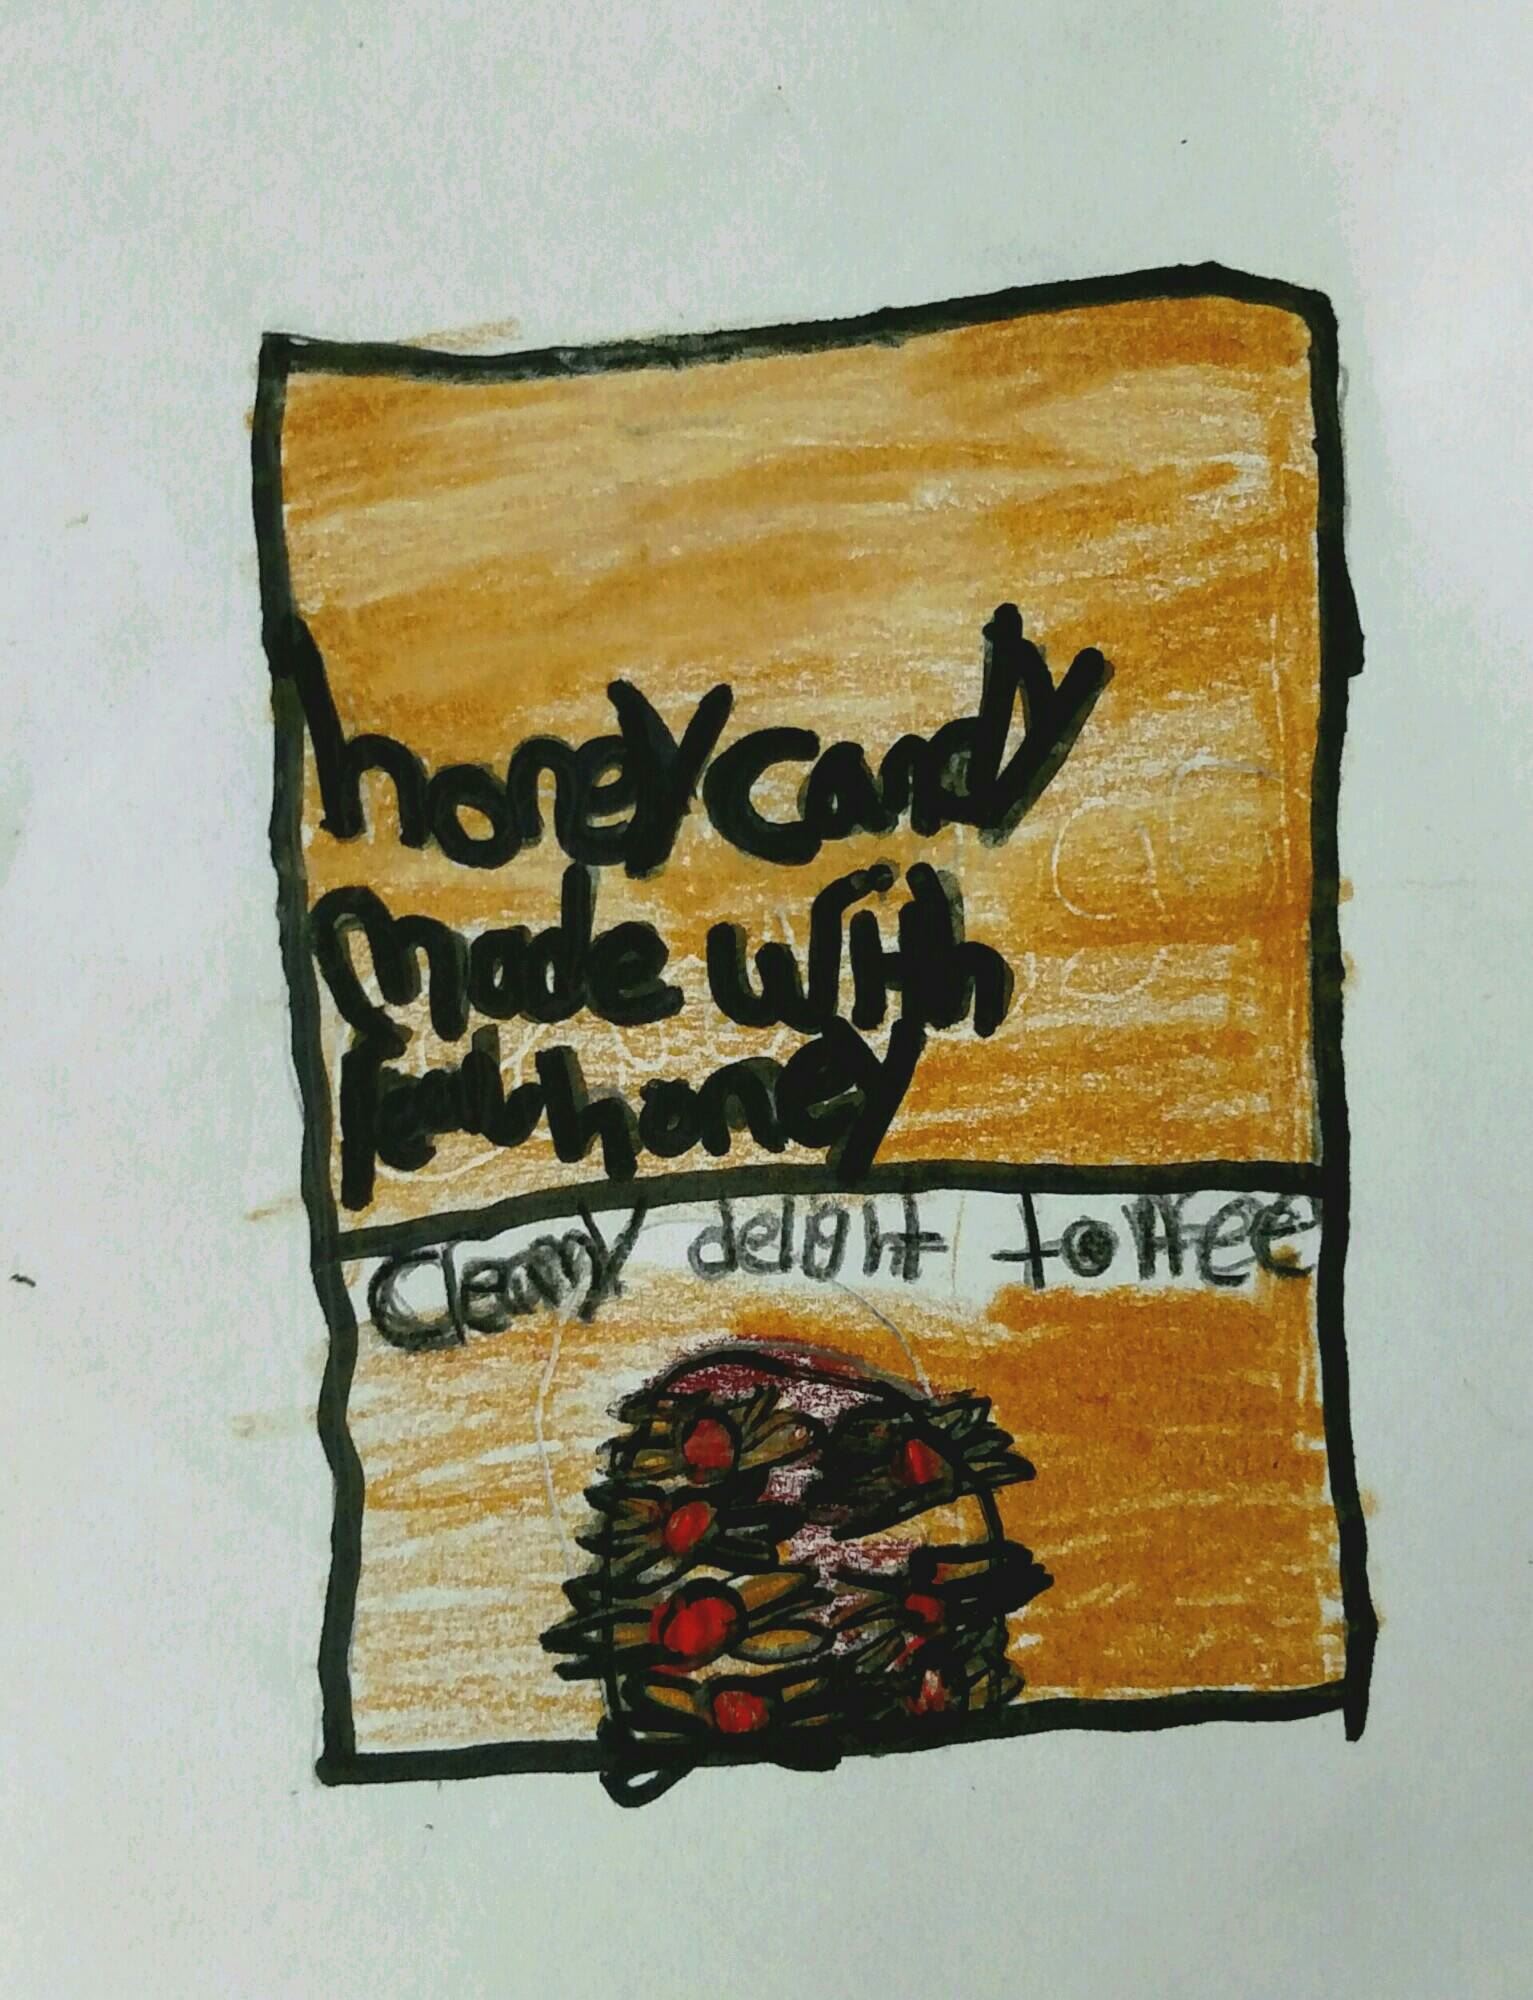 honey candy
made with
realhoney
Cleamy delight toffee